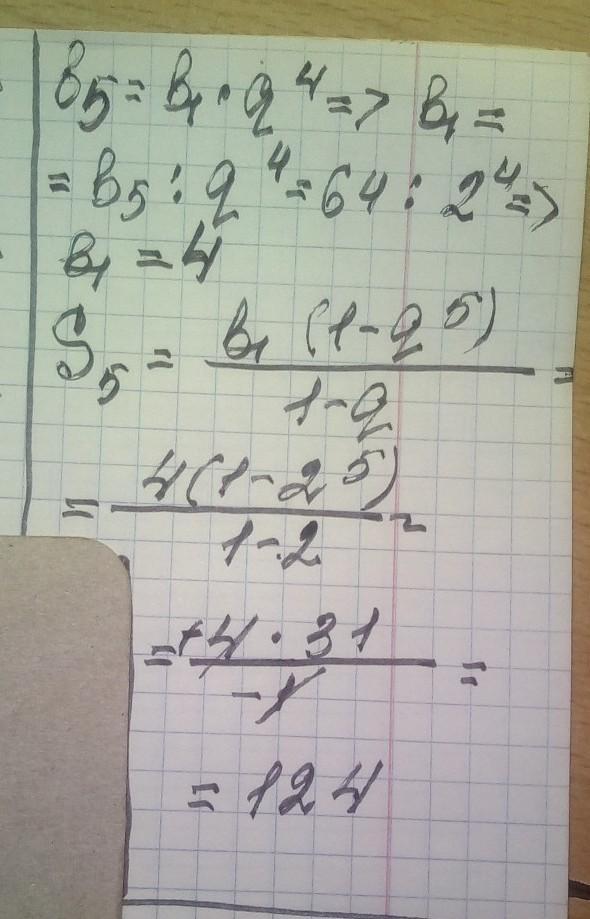 b₅ = b₁ · q⁴ => b₁ =
= b₅ : q⁴ = 64 : 2⁴ =>
b₁ = 4
S₅ = b₁ (1 - q⁵) / 1 - q =
= 4(1 - 2⁵) / 1 - 2 =
= +4 · 31 / -1 =
= 124